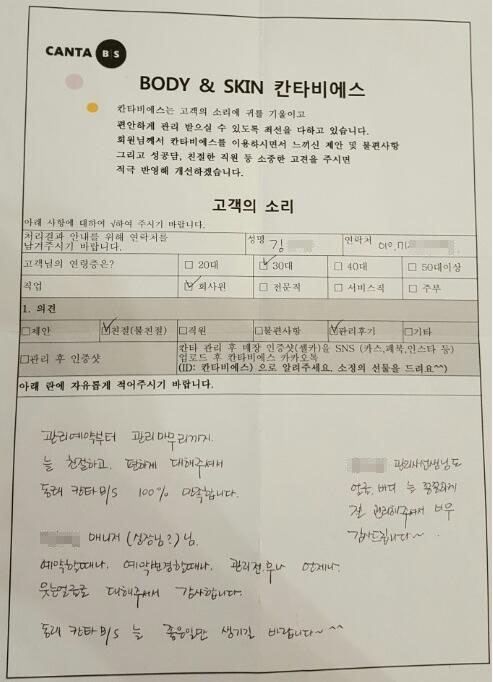 CANTA B S
BODY & SKIN 칸타비에스
칸타비에스는 고객의 소리에 귀를 기울이고
편안하게 관리 받으실 수 있도록 최선을 다하고 있습니다.
회원님께서 칸타비에스를 이용하시면서 느끼신 제안 및 불편사항
그리고 성공담, 친절한 직원 등 소중한 고견을 주시면
적극 반영해 개선하겠습니다.
고객의 소리
아래 사항에 대하여 √하여 주시기 바랍니다.
처리결과 안내를 위해 연락처를 남겨주시기 바랍니다. 성명 김 연락처 010.
고객님의 연령층은? □ 20대 ☑ 30대 □ 40대 □ 50대이상
직업 ☑ 회사원 □ 전문직 □ 서비스직 □ 주부
1. 의견
□제안 ☑친절(불친절) □직원 □불편사항 ☑관리후기 □기타
□관리 후 인증샷
칸타 관리 후 매장 인증샷(셀카)을 SNS (카스,페북,인스타 등)
업로드 후 칸타비에스 카카오톡
(ID: 칸타비에스) 으로 알려주세요. 소정의 선물을 드려요^^)
아래 란에 자유롭게 적어주시기 바랍니다.
관리예약부터 관리마무리까지
늘 친절하고, 편하게 대해주셔서
동래 칸타B/S 100% 만족합니다.
관리사선생님도
얼굴, 바디 늘 꼼꼼하게
잘 관리해주셔서 너무
감사드립니다~
매니저 (실장님?) 님.
예약할때나, 예약변경할때나, 관리전.후나 언제나
웃는얼굴로 대해주셔서 감사합니다.
동래 칸타B/S 늘 좋은일만 생기길 바랍니다~ ^^